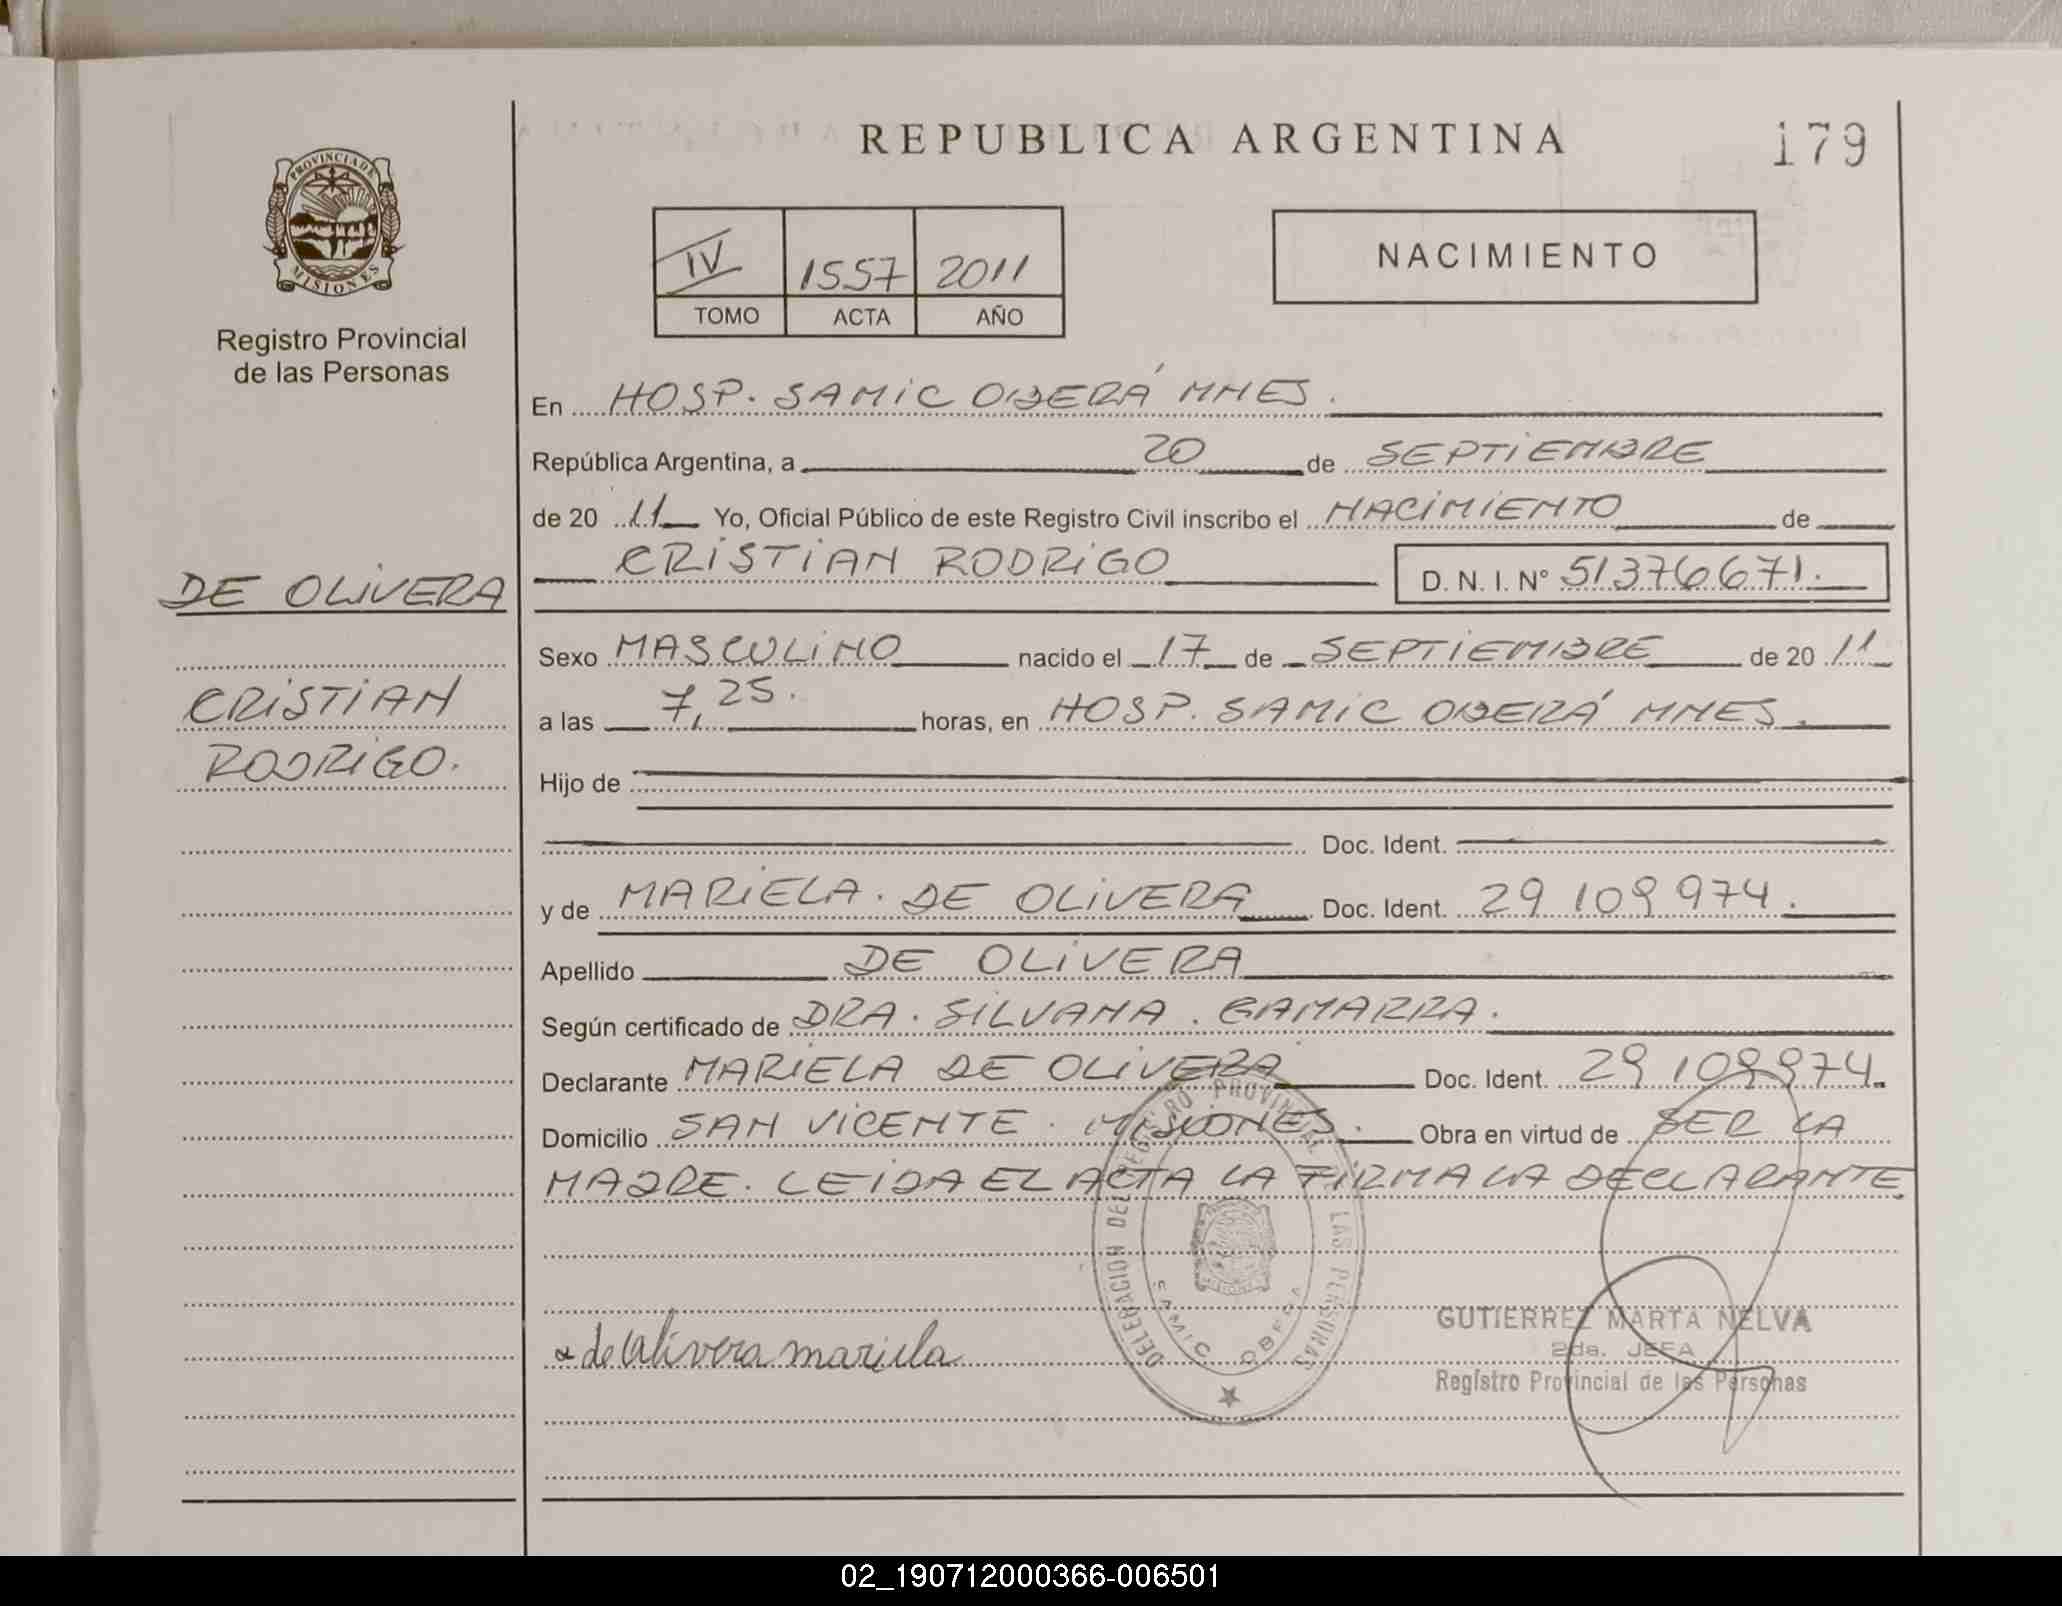 REPUBLICA ARGENTINA
179
PROVINCIA DE
MISIONES
Registro Provincial
de las Personas
IV 1557 2011
TOMO ACTA AÑO
NACIMIENTO
En HOSP. SAMIC OBERÁ MNES.
República Argentina, a 20 de SEPTIEMBRE
de 20 11 Yo, Oficial Público de este Registro Civil inscribo el NACIMIENTO de
CRISTIAN RODRIGO D. N. I. N° 51376671.
DE OLIVERA
CRISTIAN
RODRIGO.
Sexo MASCULINO nacido el 17 de SEPTIEMBRE de 20 11
a las 7,25. horas, en HOSP. SAMIC OBERÁ MNES.
Hijo de
Doc. Ident.
y de MARIELA. DE OLIVERA Doc. Ident. 29 109 974.
Apellido DE OLIVERA
Según certificado de DRA. SILVANA. GAMARRA.
Declarante MARIELA DE OLIVERA Doc. Ident. 29 109974.
Domicilio SAN VICENTE. MISIONES. Obra en virtud de SER LA
MADRE. LEIDA EL ACTA LA FIRMA LA DECLARANTE.
DELEGACION DEL REGISTRO PROVINCIAL DE LAS PERSONAS
SAMIC OBERA
de Olivera mariela
GUTIERREZ MARTA NELVA
2da. JEFA
Registro Provincial de las Personas
02_190712000366-006501